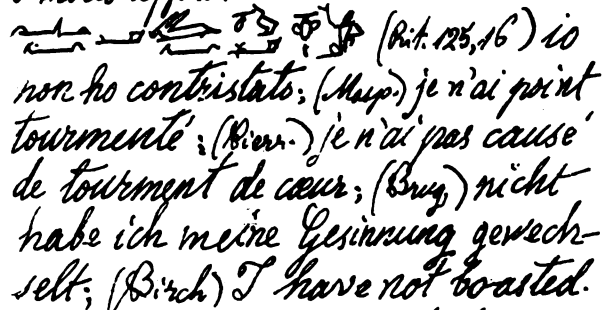 (Rit. 125,16) io
non ho contristato; (Masp.) je n'ai point
tourmenté; (Pierr.) je n'ai pas causé
de tourment de cœur; (Brug.) nicht
habe ich meine Gesinnung gewech-
selt; (Birch) I have not boasted.